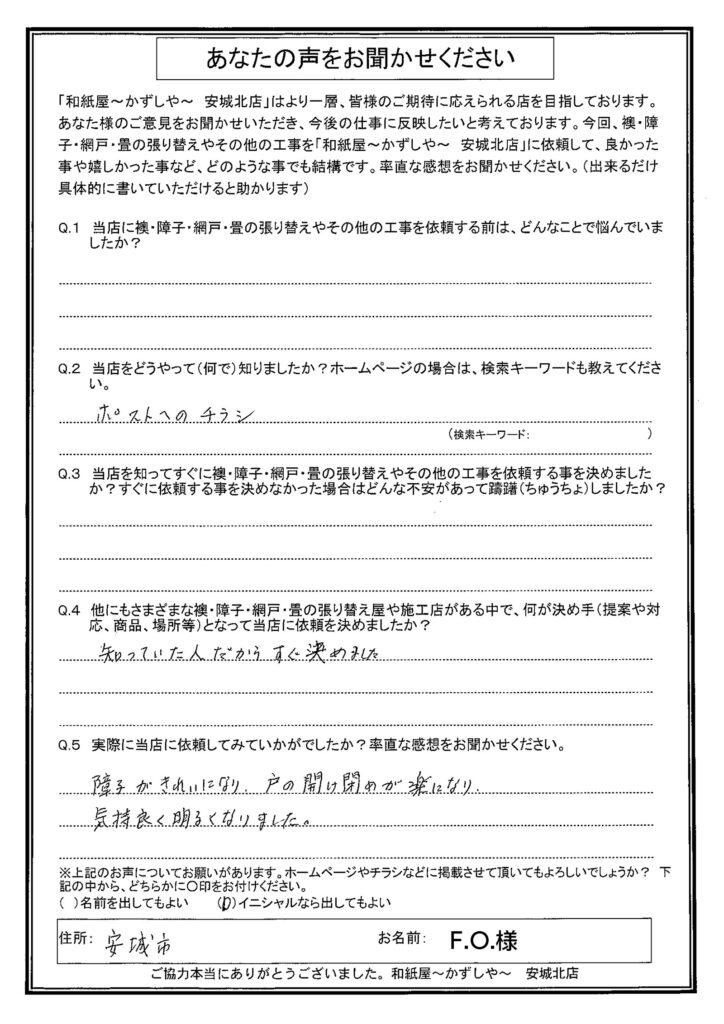 あなたの声をお聞かせください
「和紙屋～かずしや～　安城北店」はより一層、皆様のご期待に応えられる店を目指しております。
あなた様のご意見をお聞かせいただき、今後の仕事に反映したいと考えております。今回、襖・障
子・網戸・畳の張り替えやその他の工事を「和紙屋～かずしや～　安城北店」に依頼して、良かった
事や嬉しかった事など、どのような事でも結構です。率直な感想をお聞かせください。（出来るだけ
具体的に書いていただけると助かります）
Q.1　当店に襖・障子・網戸・畳の張り替えやその他の工事を依頼する前は、どんなことで悩んでいま
したか？
Q.2　当店をどうやって（何で）知りましたか？ホームページの場合は、検索キーワードも教えてくださ
い。
ポストへのチラシ
（検索キーワード:　　　　　　　　　　）
Q.3　当店を知ってすぐに襖・障子・網戸・畳の張り替えやその他の工事を依頼する事を決めました
か？すぐに依頼する事を決めなかった場合はどんな不安があって躊躇（ちゅうちょ）しましたか？
Q.4　他にもさまざまな襖・障子・網戸・畳の張り替え屋や施工店がある中で、何が決め手（提案や対
応、商品、場所等）となって当店に依頼を決めましたか？
知っていた人だからすぐ決めました
Q.5　実際に当店に依頼してみていかがでしたか？率直な感想をお聞かせください。
障子がきれいになり、戸の開け閉めが楽になり、
気持良く明るくなりました。
※上記のお声についてお願いがあります。ホームページやチラシなどに掲載させて頂いてもよろしいでしょうか？　下
記の中から、どちらかに〇印をお付けください。
（　）名前を出してもよい　　（〇）イニシャルなら出してもよい
住所:　安城市　　お名前:　F.O.様
ご協力本当にありがとうございました。和紙屋～かずしや～　安城北店